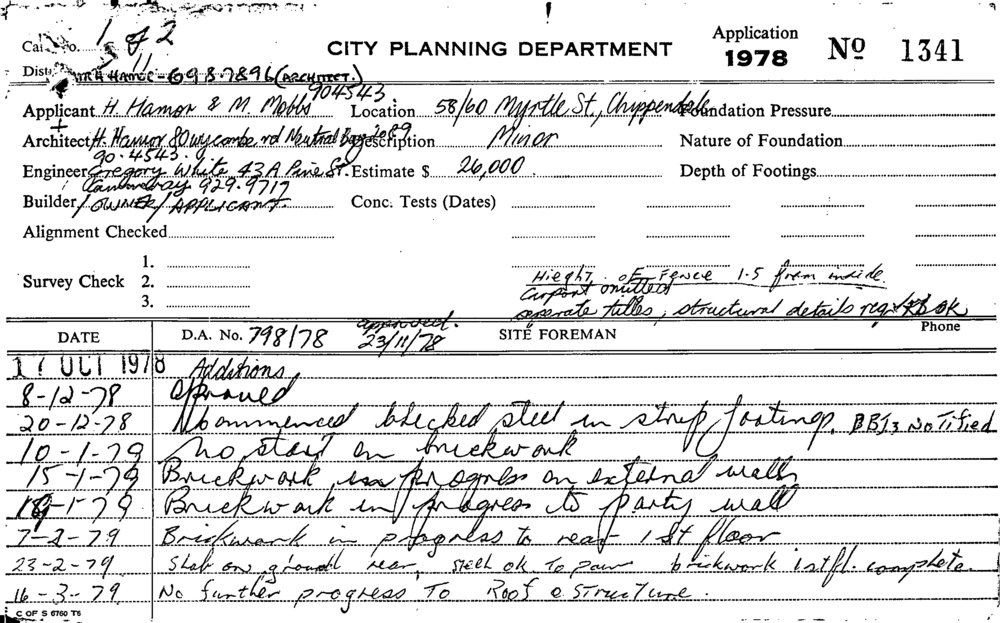 1 of 2
CITY PLANNING DEPARTMENT
Application
1978
No 1341
Cal. No.
Dist.
H HAMOR - 698 7896 (ARCHITECT.)
904543
Applicant H. Hamor & M. Mobbs
Location 58/60 Myrtle St, Chippendale
Foundation Pressure
+
Architect H. Hamor 80 wycombe rd Neutral Bay 2089
Description Minor
Nature of Foundation
90.4543.
Engineer Gregory White 43A Pine St.
Estimate $ 26,000
Depth of Footings
Cammeray 929.9717
Builder / OWNER / APPLICANT.
Conc. Tests (Dates)
Alignment Checked
Survey Check 1.
2.
3.
Hieght of Fence 1.5 from inside
Carport omitted
seperate titles, structural details reqd OK
DATE
D.A. No. 798/78
approved.
23/11/78
SITE FOREMAN
Phone
17 OCT 1978 Additions
8-12-78 Aproved
20-12-78 Commenced checked steel in strip footings. BBIs NoTified
10-1-79 No start on brickwork
15-1-79 Brickwork in progress on external walls
18-1-79 Brickwork in progress to party wall
7-2-79 Brickwork in progress to rear 1st floor
23-2-79 Slab on ground rear, steel ok to pour brickwork 1st fl. complete.
16-3-79 No further progress To Roof & STructure.
C OF S 6760 T6